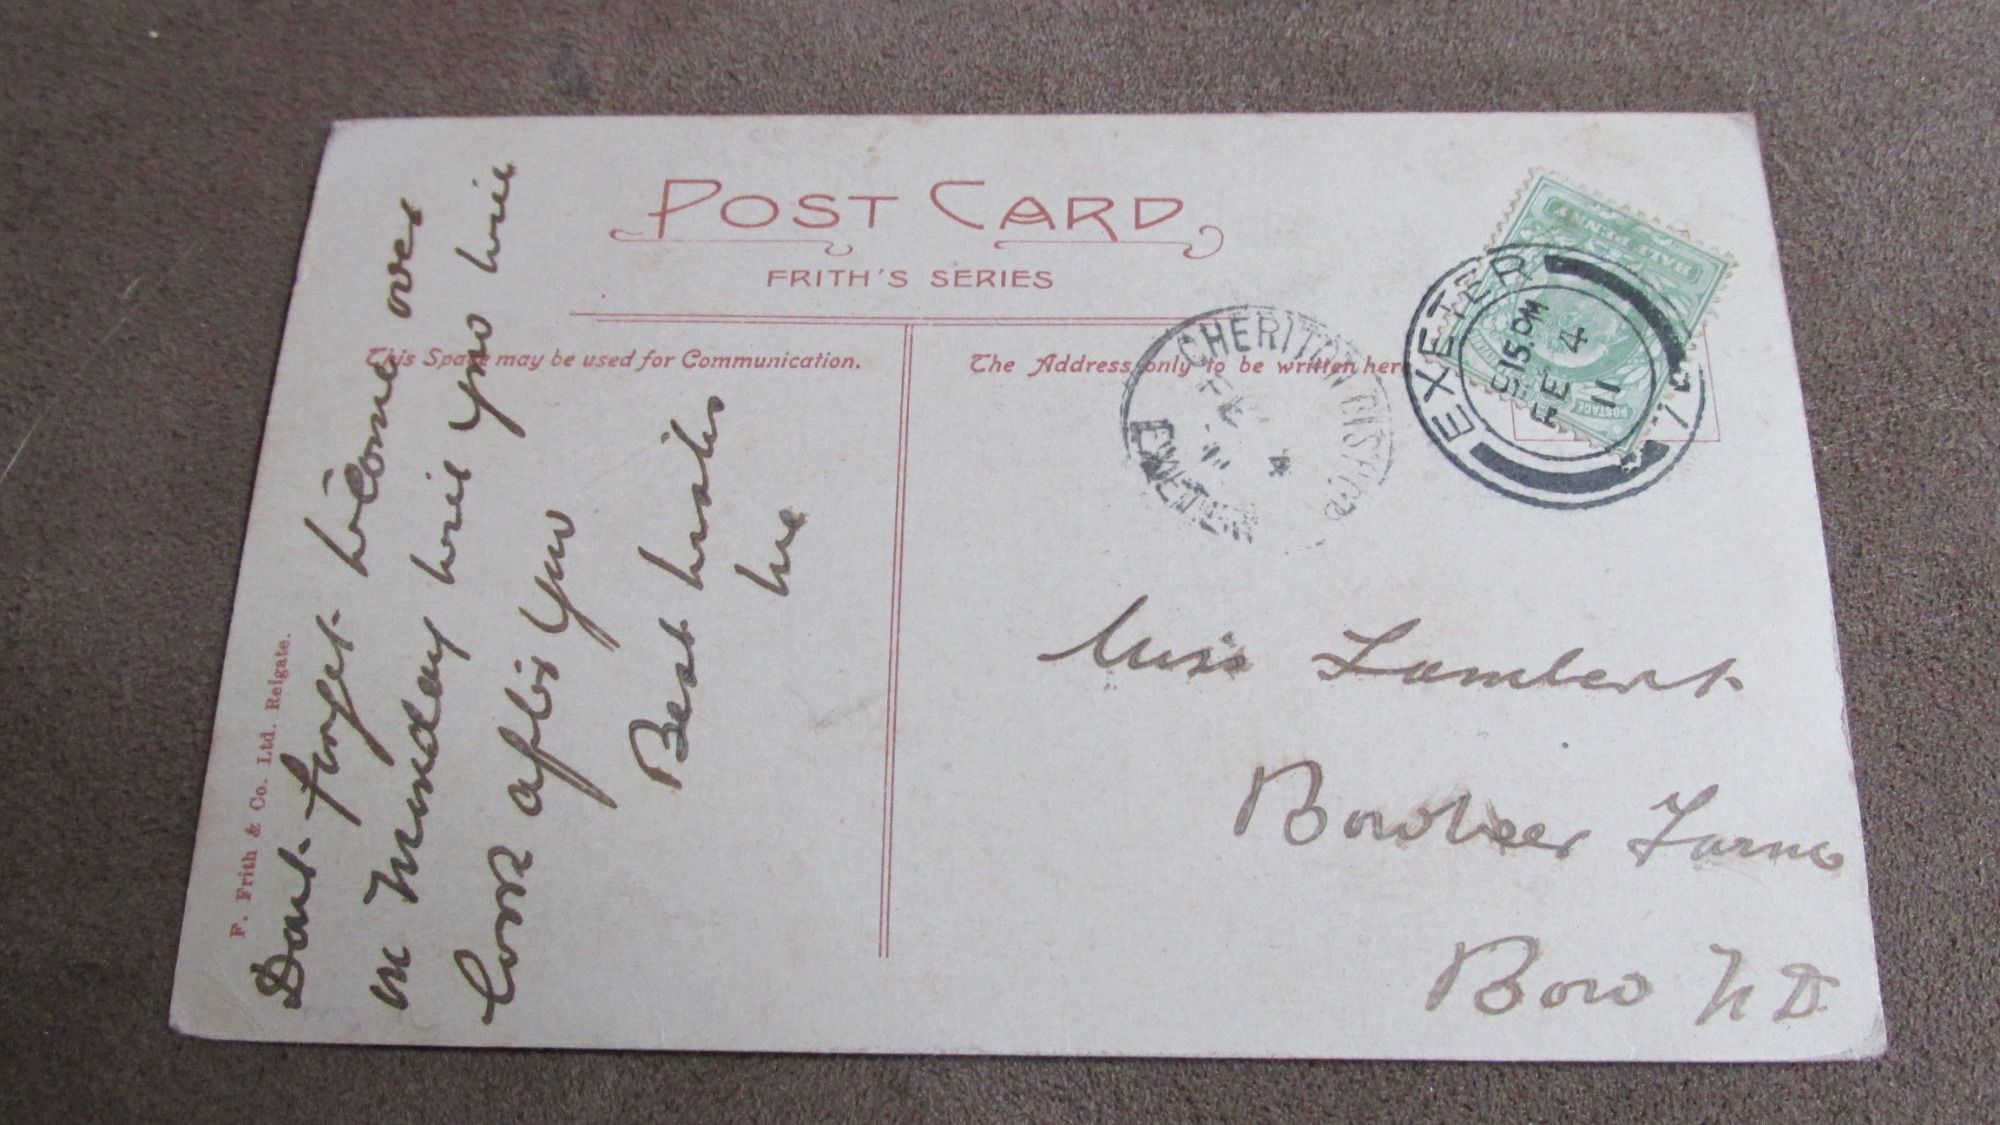 POST CARD
FRITH'S SERIES
This Space may be used for Communication.
The Address only to be written here
F. Frith & Co. Ltd. Reigate.
Dont forget to come over
on Munday will you will
look after you
Best wishes
Miss Lambert
Bowbeer Farm
Bow N D
EXETER
9.15 PM
FE 4
11
CHERITON BISHOP
EXETER
HALF PENNY
POSTAGE